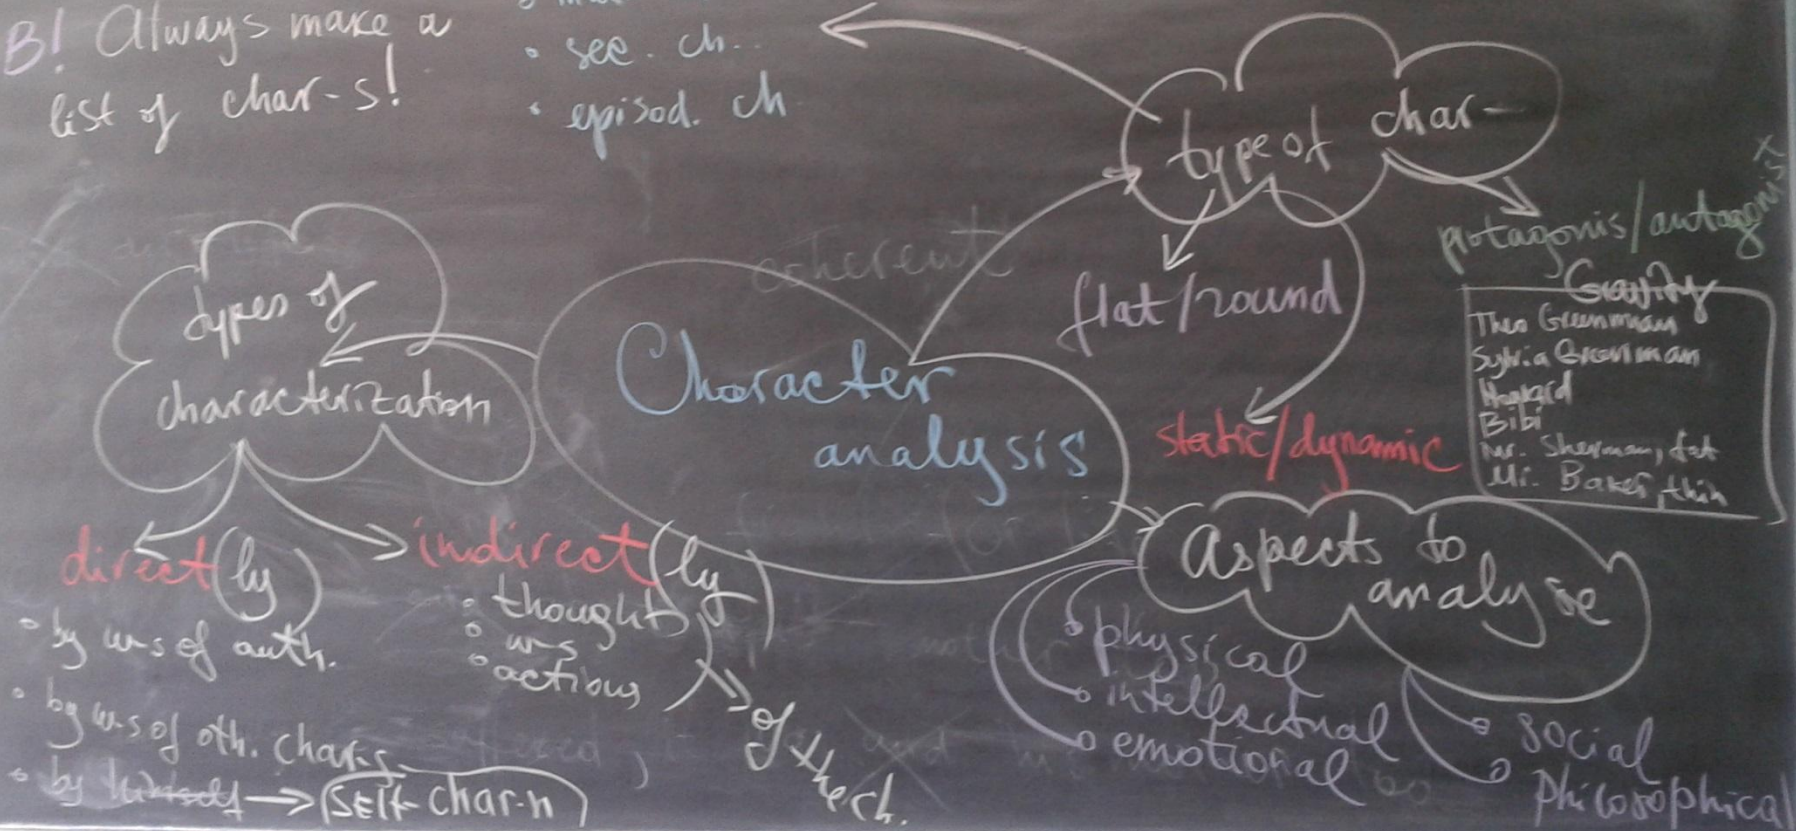 B! Always make a
list of char-s!
• sec. ch..
• episod. ch
type of char-
protagonis/antagonist
flat/round
static/dynamic
Gravity
Theo Greenman
Sylvia Greenman
Howard
Bibi
Mr. Sherman, fat
Mr. Baker, thin
types of
characterization
Character
analysis
coherent
direct(ly)
• by w-s of auth.
• by w-s of oth. char-s
• by himself → self-char-n
indirect(ly)
• thoughts
• w-s
• actions
of the ch.
Aspects to
analyse
physical
intellectual
emotional
social
philosophical